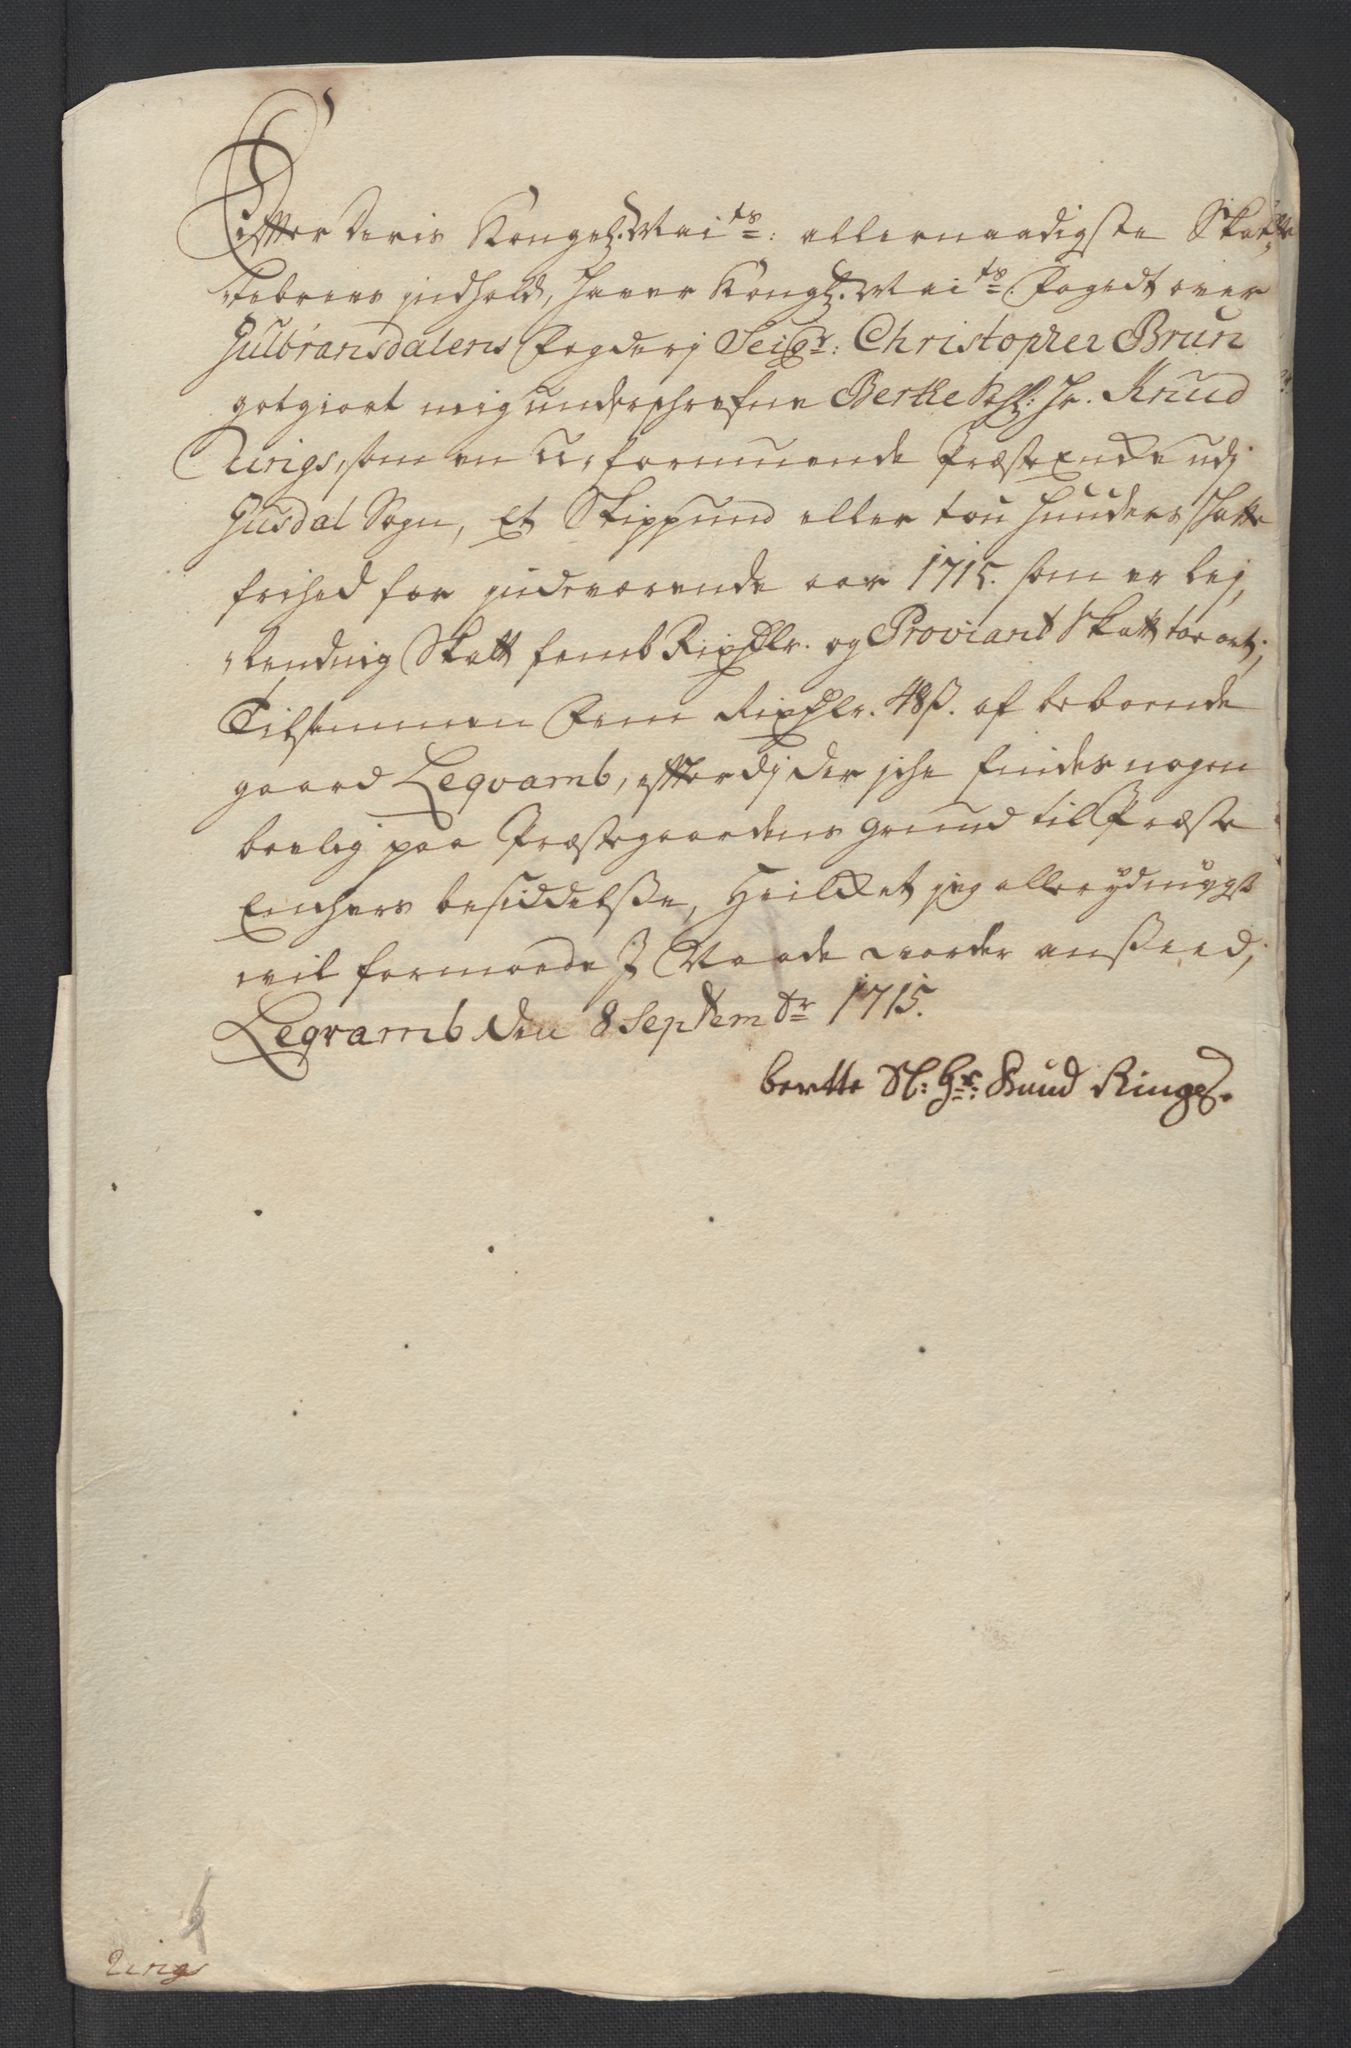 Effter Deris Kongel: Mai^ts: allernaadigste Skatte
-febrevs jndhold, haver Kongl: Mai^ts: Fogedt over
Gulbransdalens Fogderj Seig^r: Christopher Brun
gotgiort mig underschrefne Berthe Sl: Hr. Knud
Rings, som en U-formuende Præste Encke udj
Gusdal Sogn, Et Skippund eller tou huuders schatte
frihed for jndeværende aar 1715. som er be-
-rendnig Skatt femb Rixdlr. og Proviant Skatt tor ort;
Tilsammen Fem Rixdlr. 48 ß. af beboende
gaard Leqvamb, effterdj der iche findes nogen
boelig paa Præstegaardens grund till Præste
Enchers besiddelsse, Hvilcket jeg allerydmygst
vil formode J Naade vorder ansseed;
Leqvamb den 8 Septemb^r 1715.
berthe Sl: H^r: Knud Rings.
Rings